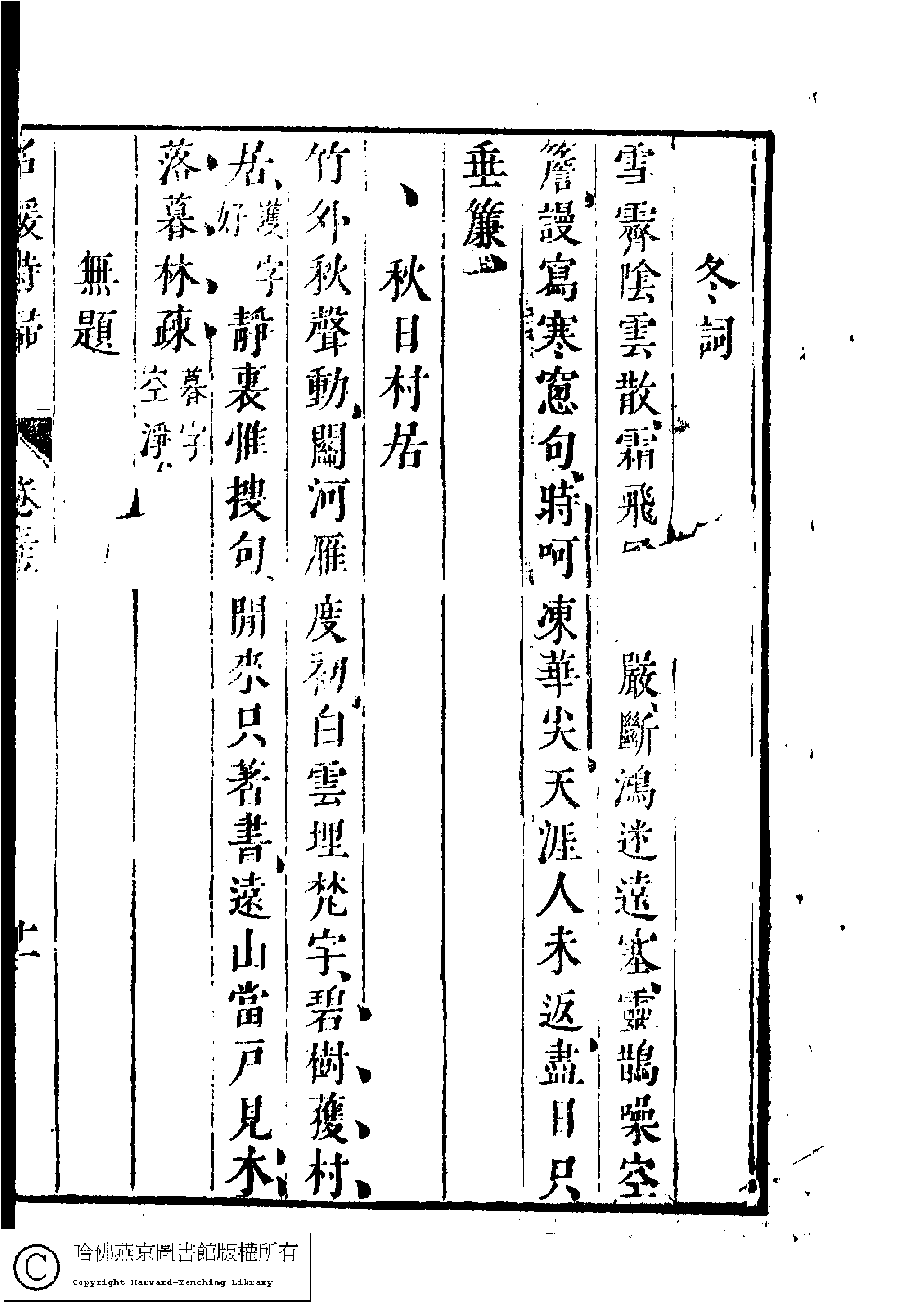 冬詞
雪霽陰雲散霜飛嚴斷鴻迷遠塞靈鵲噪空
簷謾寫寒窻句時呵凍筆尖天涯人未返盡日只
垂簾
秋日村居
竹外秋聲動關河雁度初白雲埋梵宇碧樹蔆村
居護字好靜裏惟搜句閒來只著書遠山當戶見木
落暮林疎暮字空淨
無題
名媛詩歸
十一
哈佛燕京圖書館版權所有
Copyright Harvard-Yenching Library